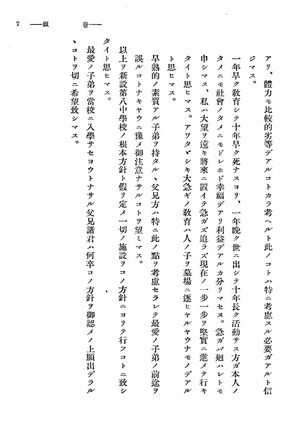 卷 頭 7
アリ、體力モ比較的劣等デアルコトカラ考ヘルト此ノコトハ特ニ考慮スル必要ガアルト信
ジマス。
一年早ク教育シテ十年早ク死ナスヨリ、一年晩ク世ニ出シテ十年長ク活動サス方ガ本人ノ
タメニモ社會ノタメニモドレホド幸福デアリ利益デアルカ分リマセヌ。急ガバ廻ハレトモ
申シマス、私ハ大望ヲ遠キ將來ニ置イテ急ガズ迫ラズ現在ノ一歩一歩ヲ堅實ニ進メテ行キ
タイト思ヒマス。アワタヾシキ大急ギノ教育ハ人ノ子ヲ墓場ニ逐ヒヤルヤウナモノデアル
ト思ヒマス。
早熟的ノ素質アル子弟ヲ持タルヽ父兄方ハ特ニ此ノ點ヲ考慮セラレテ最愛ノ子弟ノ前途ヲ
誤ルコトナキヤウニ豫メ御注意ナサルコトヲ望ミマス。
以上ヲ新設第八中學校ノ根本方針ト假リ定メ一切ノ施設ヲコノ方針ニヨリテ行フコトニ致シ
最愛ノ子弟ヲ當校ニ入學サセヨウトナサル父兄諸君ハ何卒コノ方針ヲ御認メノ上願出デラル
ヽコトヲ切ニ希望致シマス。